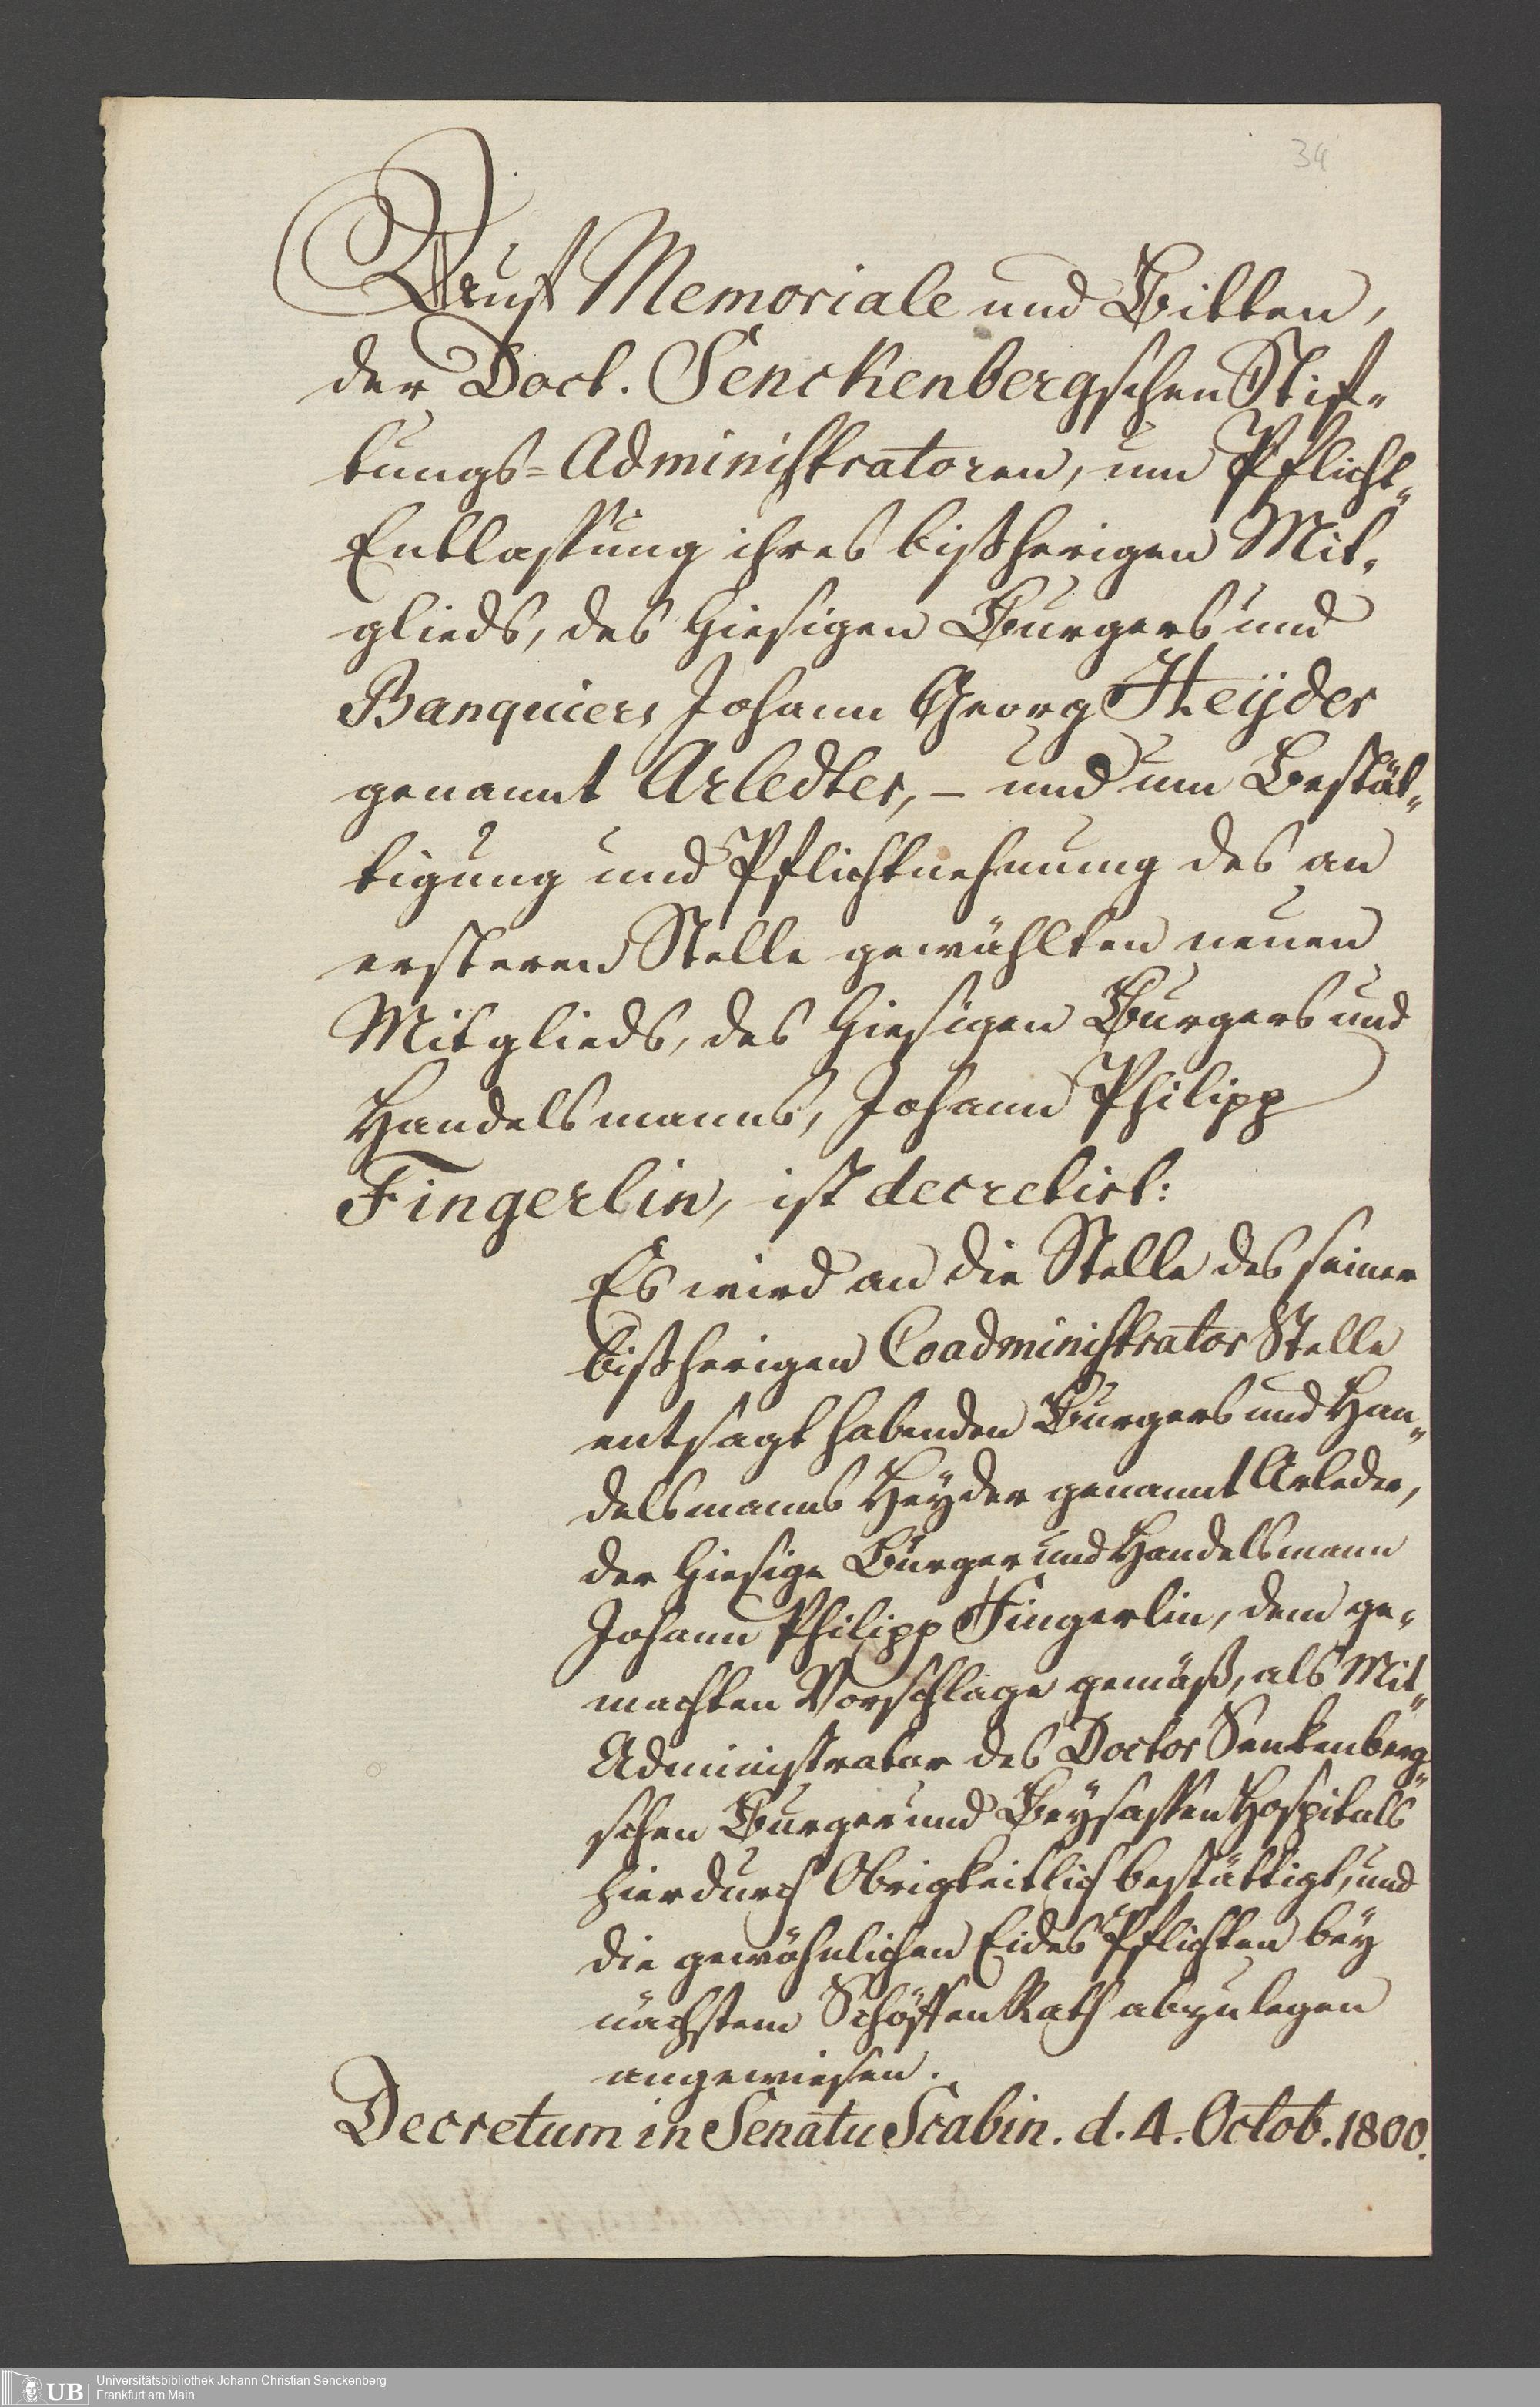 34
Auf Memoriale und Bitten,
der Doct. Senckenbergschen Stif„
tungs=Administratoren, um Pflicht„
Entlassung ihres bißherigen Mit„
glieds, des hiesigen Burgers und
Banquiers Johann Georg Heÿder
genannt Arledter, – und um Bestät„
tigung und Pflichtnehmung des an
ersteren Stelle gewählten neuen
Mitglieds, des hiesigen Burgers und
Handelsmanns, Johann Philipp
Fingerlin, ist decretirt:
Es wird an die Stelle des seiner
bißherigen Coadministrator Stelle
entsagt habenden Burgers und Han„
delsmanns Heÿder genannt Arleder,
der hiesige Burger und Handelsmann
Johann Philipp Fingerlin, dem ge„
machten Vorschlage gemäß, als Mit„
Administrator des Doctor Senkenberg„
schen Burger und Beysassen Hospitals
hierdurch Obrigkeitlich bestättigt, und
die gewöhnlichen Eides Pflichten beÿ
nächstem Schöffen Rath abzulegen
angewiesen.
Decretum in Senatu Scabin. d. 4. Octob. 1800.
UB
Universitätsbibliothek Johann Christian Senckenberg
Frankfurt am Main